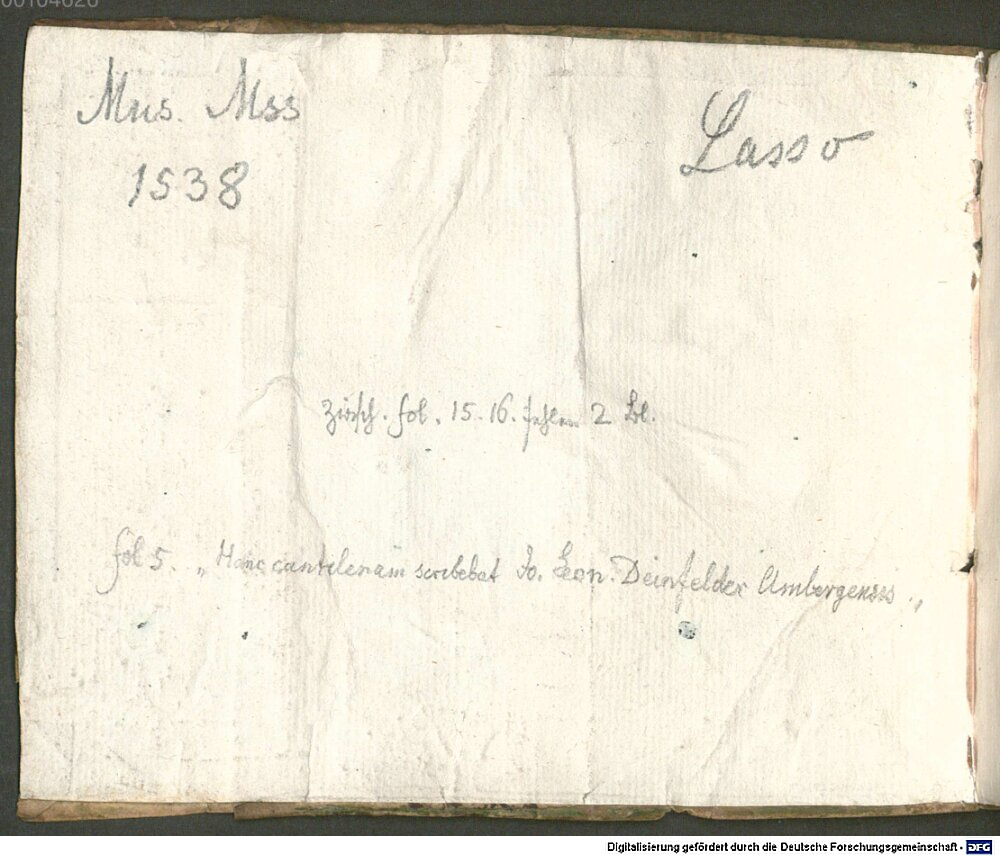 00104626
Mus. Mss
1538
Lasso
zwisch. fol. 15-16. fehlen 2 Bl.
fol 5. „Hanc cantilenam scribebat Jo. Leon. Deinfelder Ambergensis.„
Digitalisierung gefördert durch die Deutsche Forschungsgemeinschaft - DFG